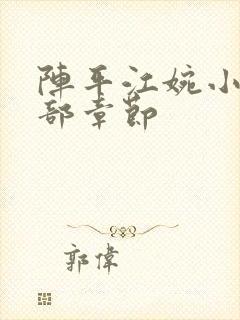 陣平江婉小
部章節
郭偉